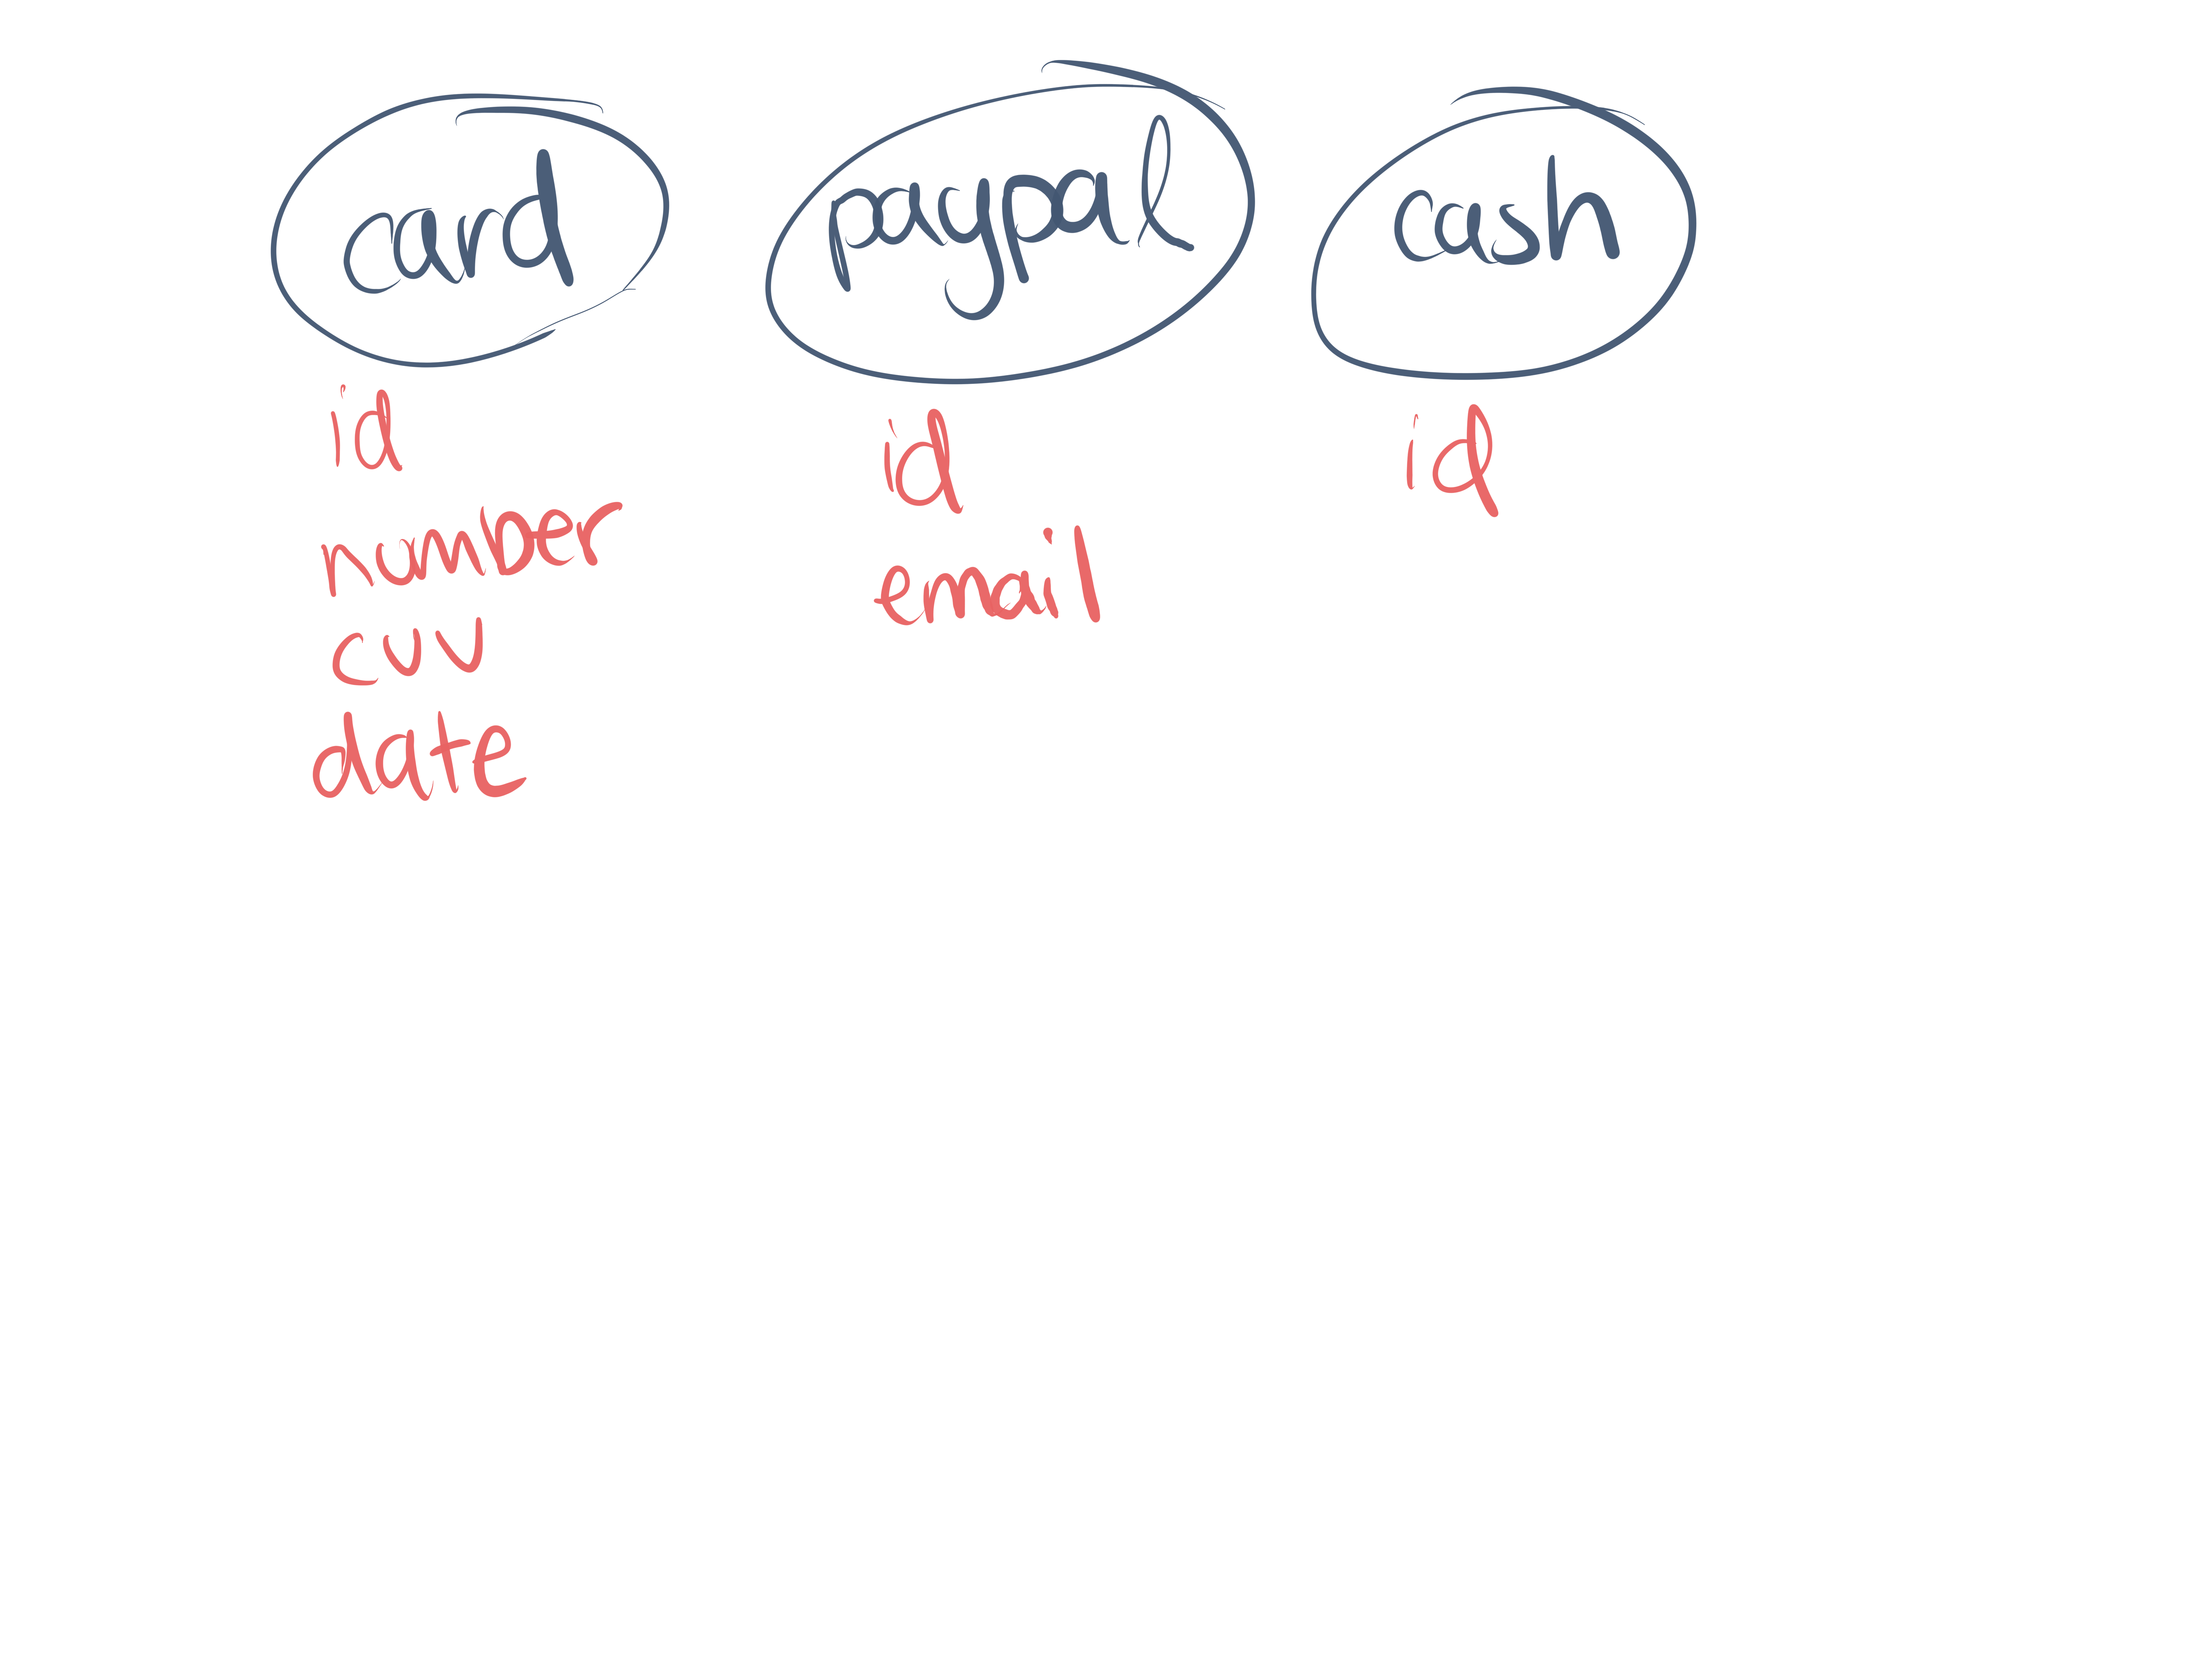 card
id
number
cvv
date
paypal
id
email
cash
id